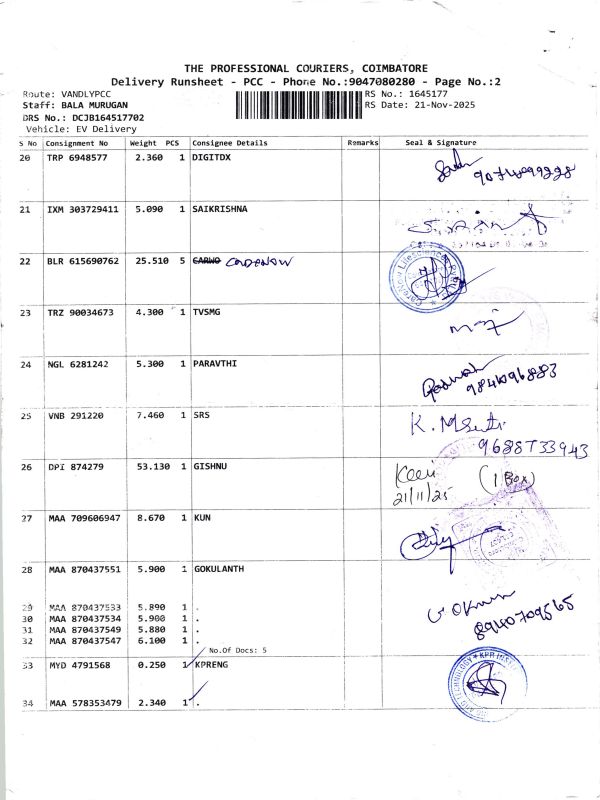 THE PROFESSIONAL COURIERS, COIMBATORE
Delivery Runsheet - PCC - Phone No.:9047080280 - Page No.:2
Route: VANDLYPCC
RS No.: 1645177
Staff: BALA MURUGAN
RS Date: 21-Nov-2025
DRS No.: DCJB164517702
Vehicle: EV Delivery
S No Consignment No Weight PCS Consignee Details Remarks Seal & Signature
20 TRP 6948577 2.360 1 DIGITDX
21 IXM 303729411 5.090 1 SAIKRISHNA
22 BLR 615690762 25.510 5 CARWO
23 TRZ 90034673 4.300 1 TVSMG
24 NGL 6281242 5.300 1 PARAVTHI
9840096883
25 VNB 291220 7.460 1 SRS K. M
9688733943
26 DPI 874279 53.130 1 GISHNU (1 Box)
21/11/25
27 MAA 709606947 8.670 1 KUN
28 MAA 870437551 5.900 1 GOKULANTH
29 MAA 870437533 5.890 1 .
30 MAA 870437534 5.900 1 .
31 MAA 870437549 5.880 1 .
32 MAA 870437547 6.100 1 .
8940709565
No.Of Docs: 5
33 MYD 4791568 0.250 1 KPRENG
34 MAA 578353479 2.340 1 .